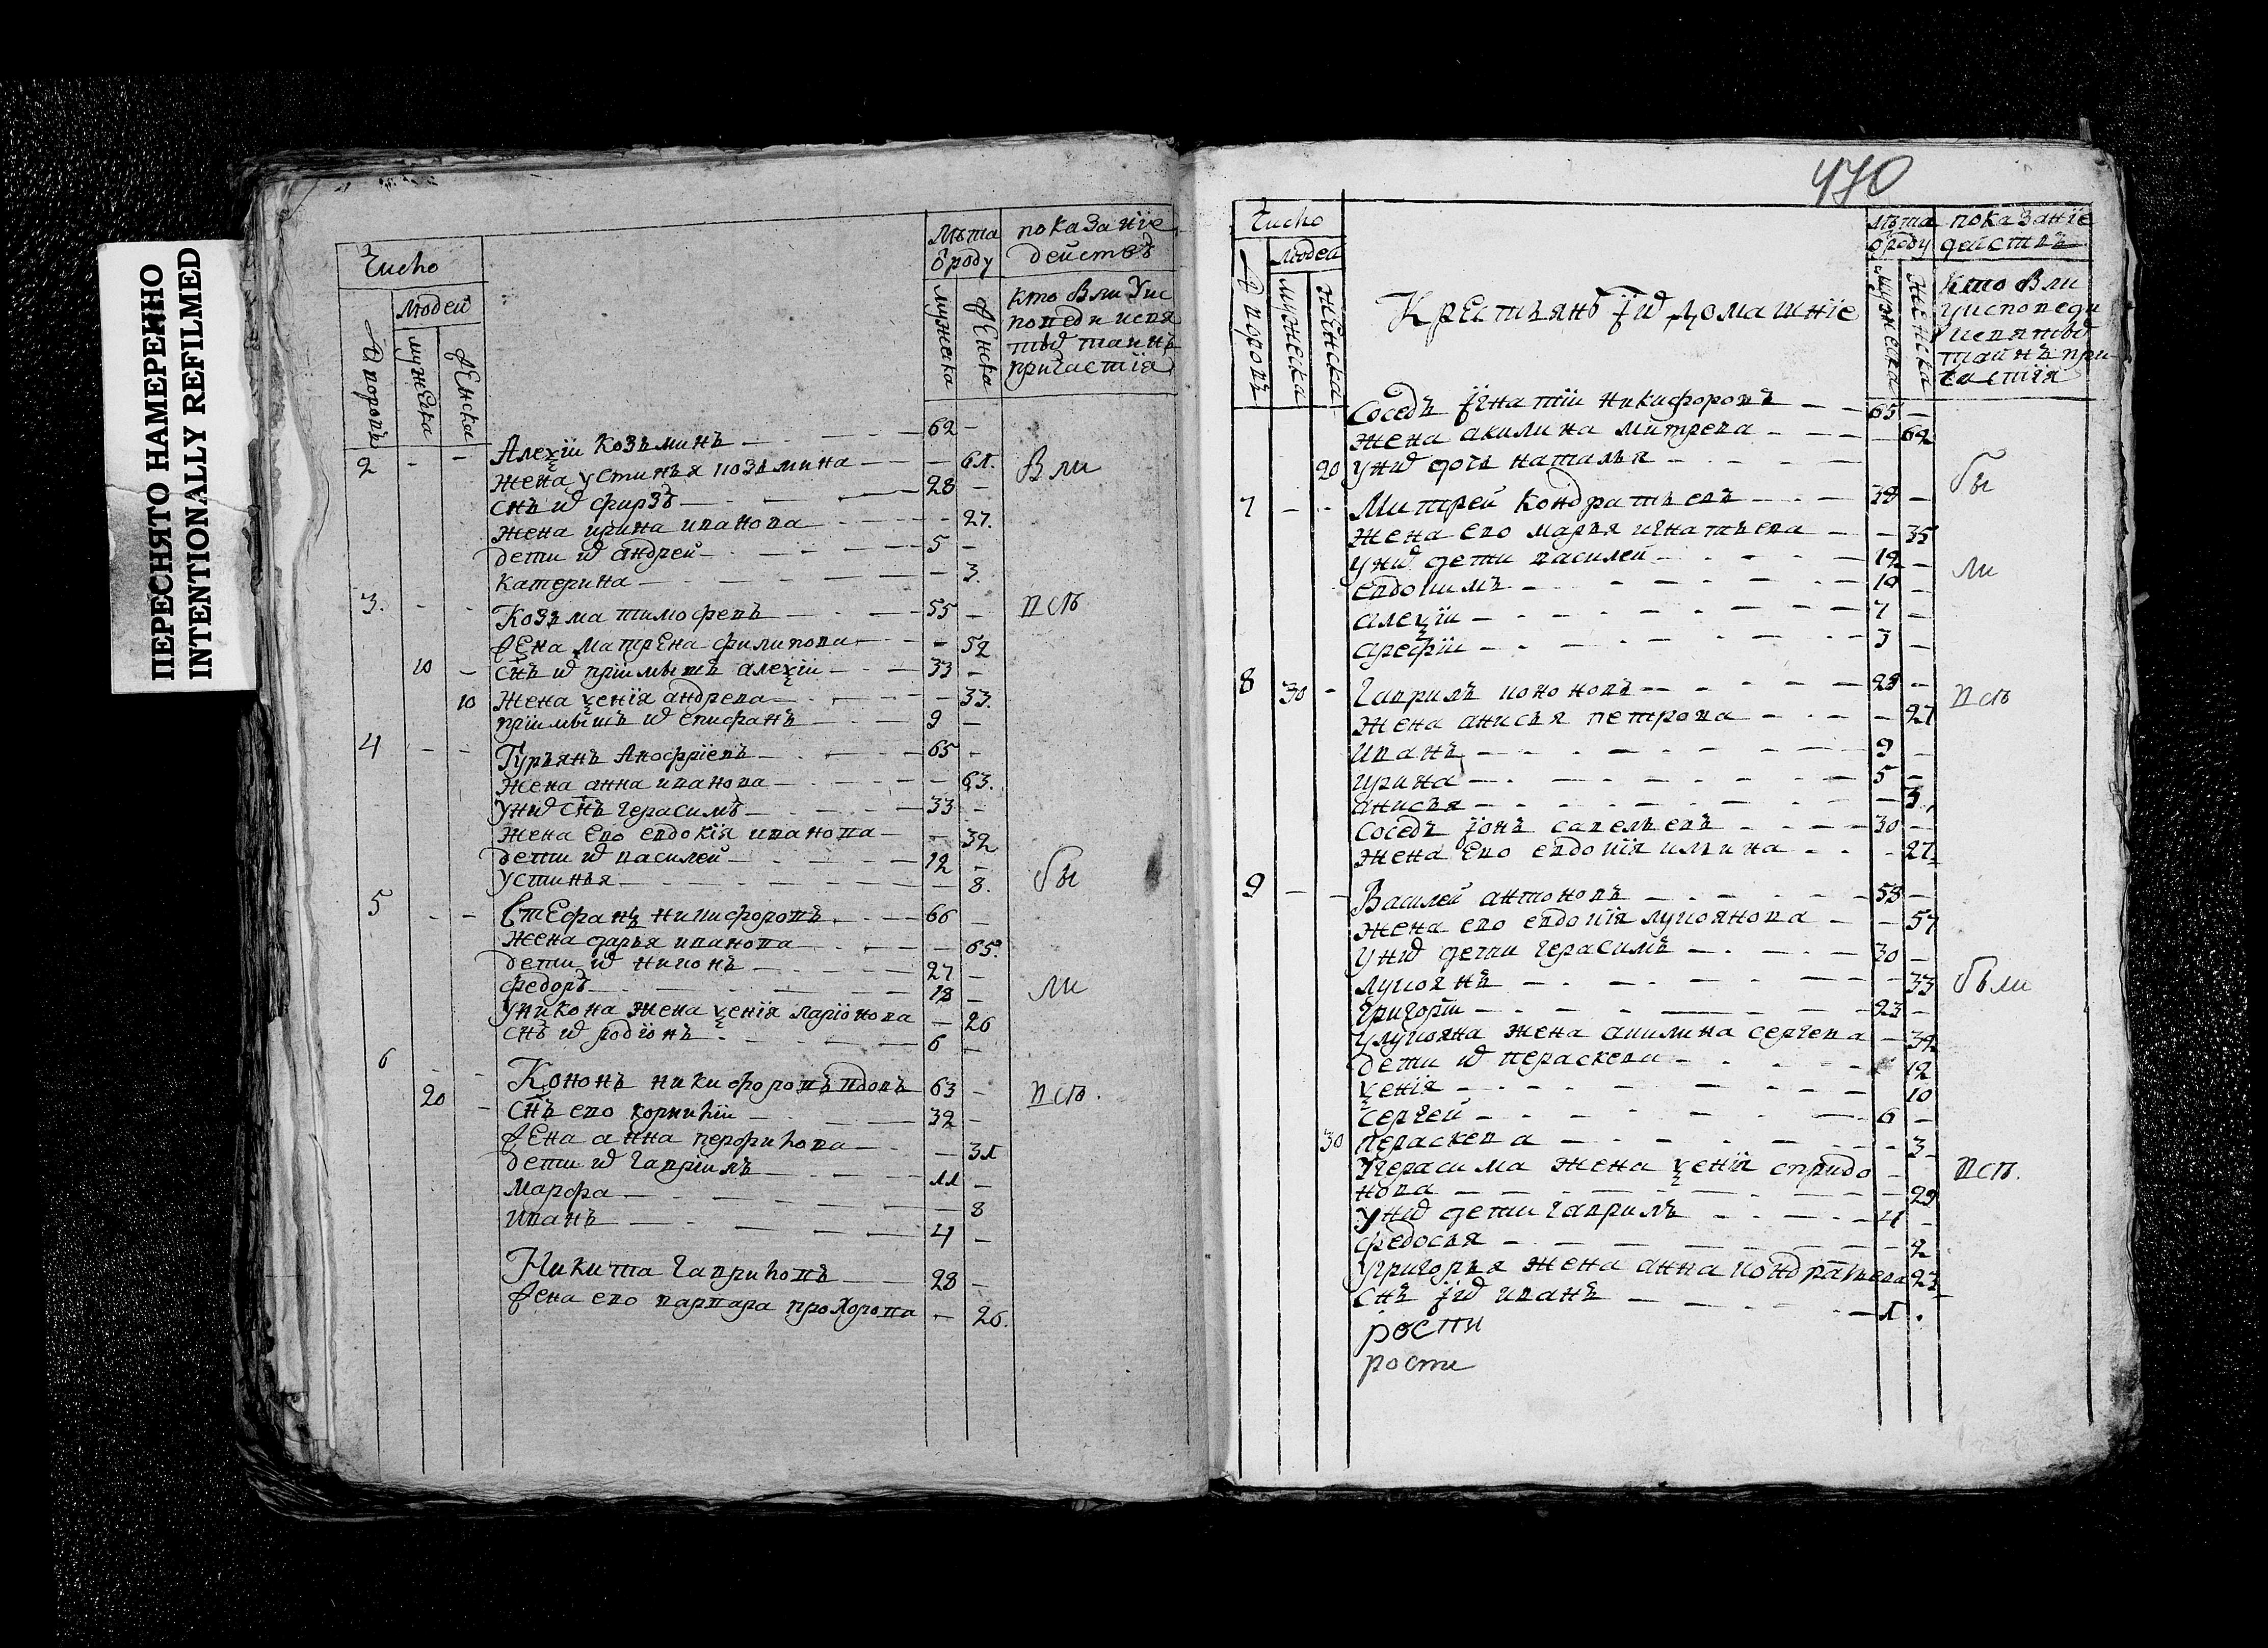 ПЕРЕСНЯТО НАМЕРЕННО
INTENTIONALLY REFILMED
Число
Людей
Дворовъ
мужеска
женска
Лѣта
ѿ роду
мужеска
женска
показанїе
действъ
кто Были Уис
поведи исвя
тыѿ таинъ
причастїя
2 - - Алеѯїи Козьминъ 62 -
жена устинья козьмина - 61.
снъ иѿ фирзъ 28 -
жена ирина иванова - 27.
дети иѿ андреи 5 -
катерина - 3.
3. - - Козьма тимофевъ 55 -
жена матрена филипова - 52
10 - снъ иѿ прїимышъ алеѯїи 33 -
10 жена ѯенїя андрева - 33.
прїимышъ иѿ епифанъ 9 -
4 - - Гурьянъ Анофрїевъ 65 -
жена анна иванова - 63.
униѿ снъ герасимъ 33 -
жена ево евдокїя иванова - 32
дети иѿ василеи 12 -
устинья - 8.
5 - - Стефанъ никифоровъ 66 -
жена дарья иванова - 65.
дети иѿ никонъ 27 -
федоръ 18 -
уникона жена ѯенїя ларїонова - 26
снъ иѿ родїонъ 6 -
6 - - Кононъ никифоровъ вдовъ 63 -
20 - снъ ево корнилїи 32 -
жена анна перфилова - 31
дети иѿ гаврїилъ 11 -
Марфа - 8
иванъ 4 -
Никита гавриловъ 28 -
жена ево варвара прохорова - 26.
Были
всѣ
бы
ли
всѣ.
470
Число
Людей
Дворовъ
мужеска
женска
Крестьянѣ їиѿ домашнїе
Лѣта
ѿ роду
мужеска
женска
показанїе
действъ
кто Были
уисповеди
исвятыѿ
таинъ при
частїя
соседъ їгнатїи никифоровъ 65 -
жена акилина митрева - 62
20 униѿ дочь наталья
7 - - Митреи кондратьевъ 38 -
жена ево марья игнатьева - 35
униѿ дети василеи 12 -
евдокимъ 10 -
алеѯїи 7 -
арефїи 3 -
8 30 - Гаврилъ кононовъ 28 -
жена анисья петрова - 27
иванъ 9 -
ирина 5 -
анисья - 3.
соседъ їонъ савельевъ 30 -
жена ево евдокїя ильина - 27.
9 - - Василеи антоновъ 58 -
жена ево евдокїя лукоянова - 57
униѿ дети герасимъ 30 -
лукоянъ - 33
григорїи 23 -
улукояна жена акилина сергева - 32
дети иѿ пераскеви 12
ѯенїя 10
сергеи 6 -
30 пераскева - 3
угерасима жена ѯенїя спридо
нова - 29
униѿ дети гаврилъ 4 -
федосья - 2
угригорья жена анна кондратьева 23
снъ їиѿ иванъ 1 .
рости
рости
бы
ли
всѣ
были
всѣ.